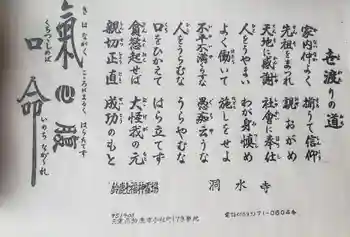 世渡りの道
家内仲よく 揃うて信仰
先祖をまつれ 親おがめ
天地に感謝 社會に奉仕
人をうやまい わが身慎め
よく働いて 施しをせよ
不平不満らな 愚痴云うな
人をうらむな うらやむな
口をひかえて はら立てず
貪慾起せば 大怪我の元
親切正直 成功のもと
洞水寺
鈴鹿七福神霊場
氣心腹
きはながく こころはまるく はらたてず
口命
くちつつしめば いのちながられ